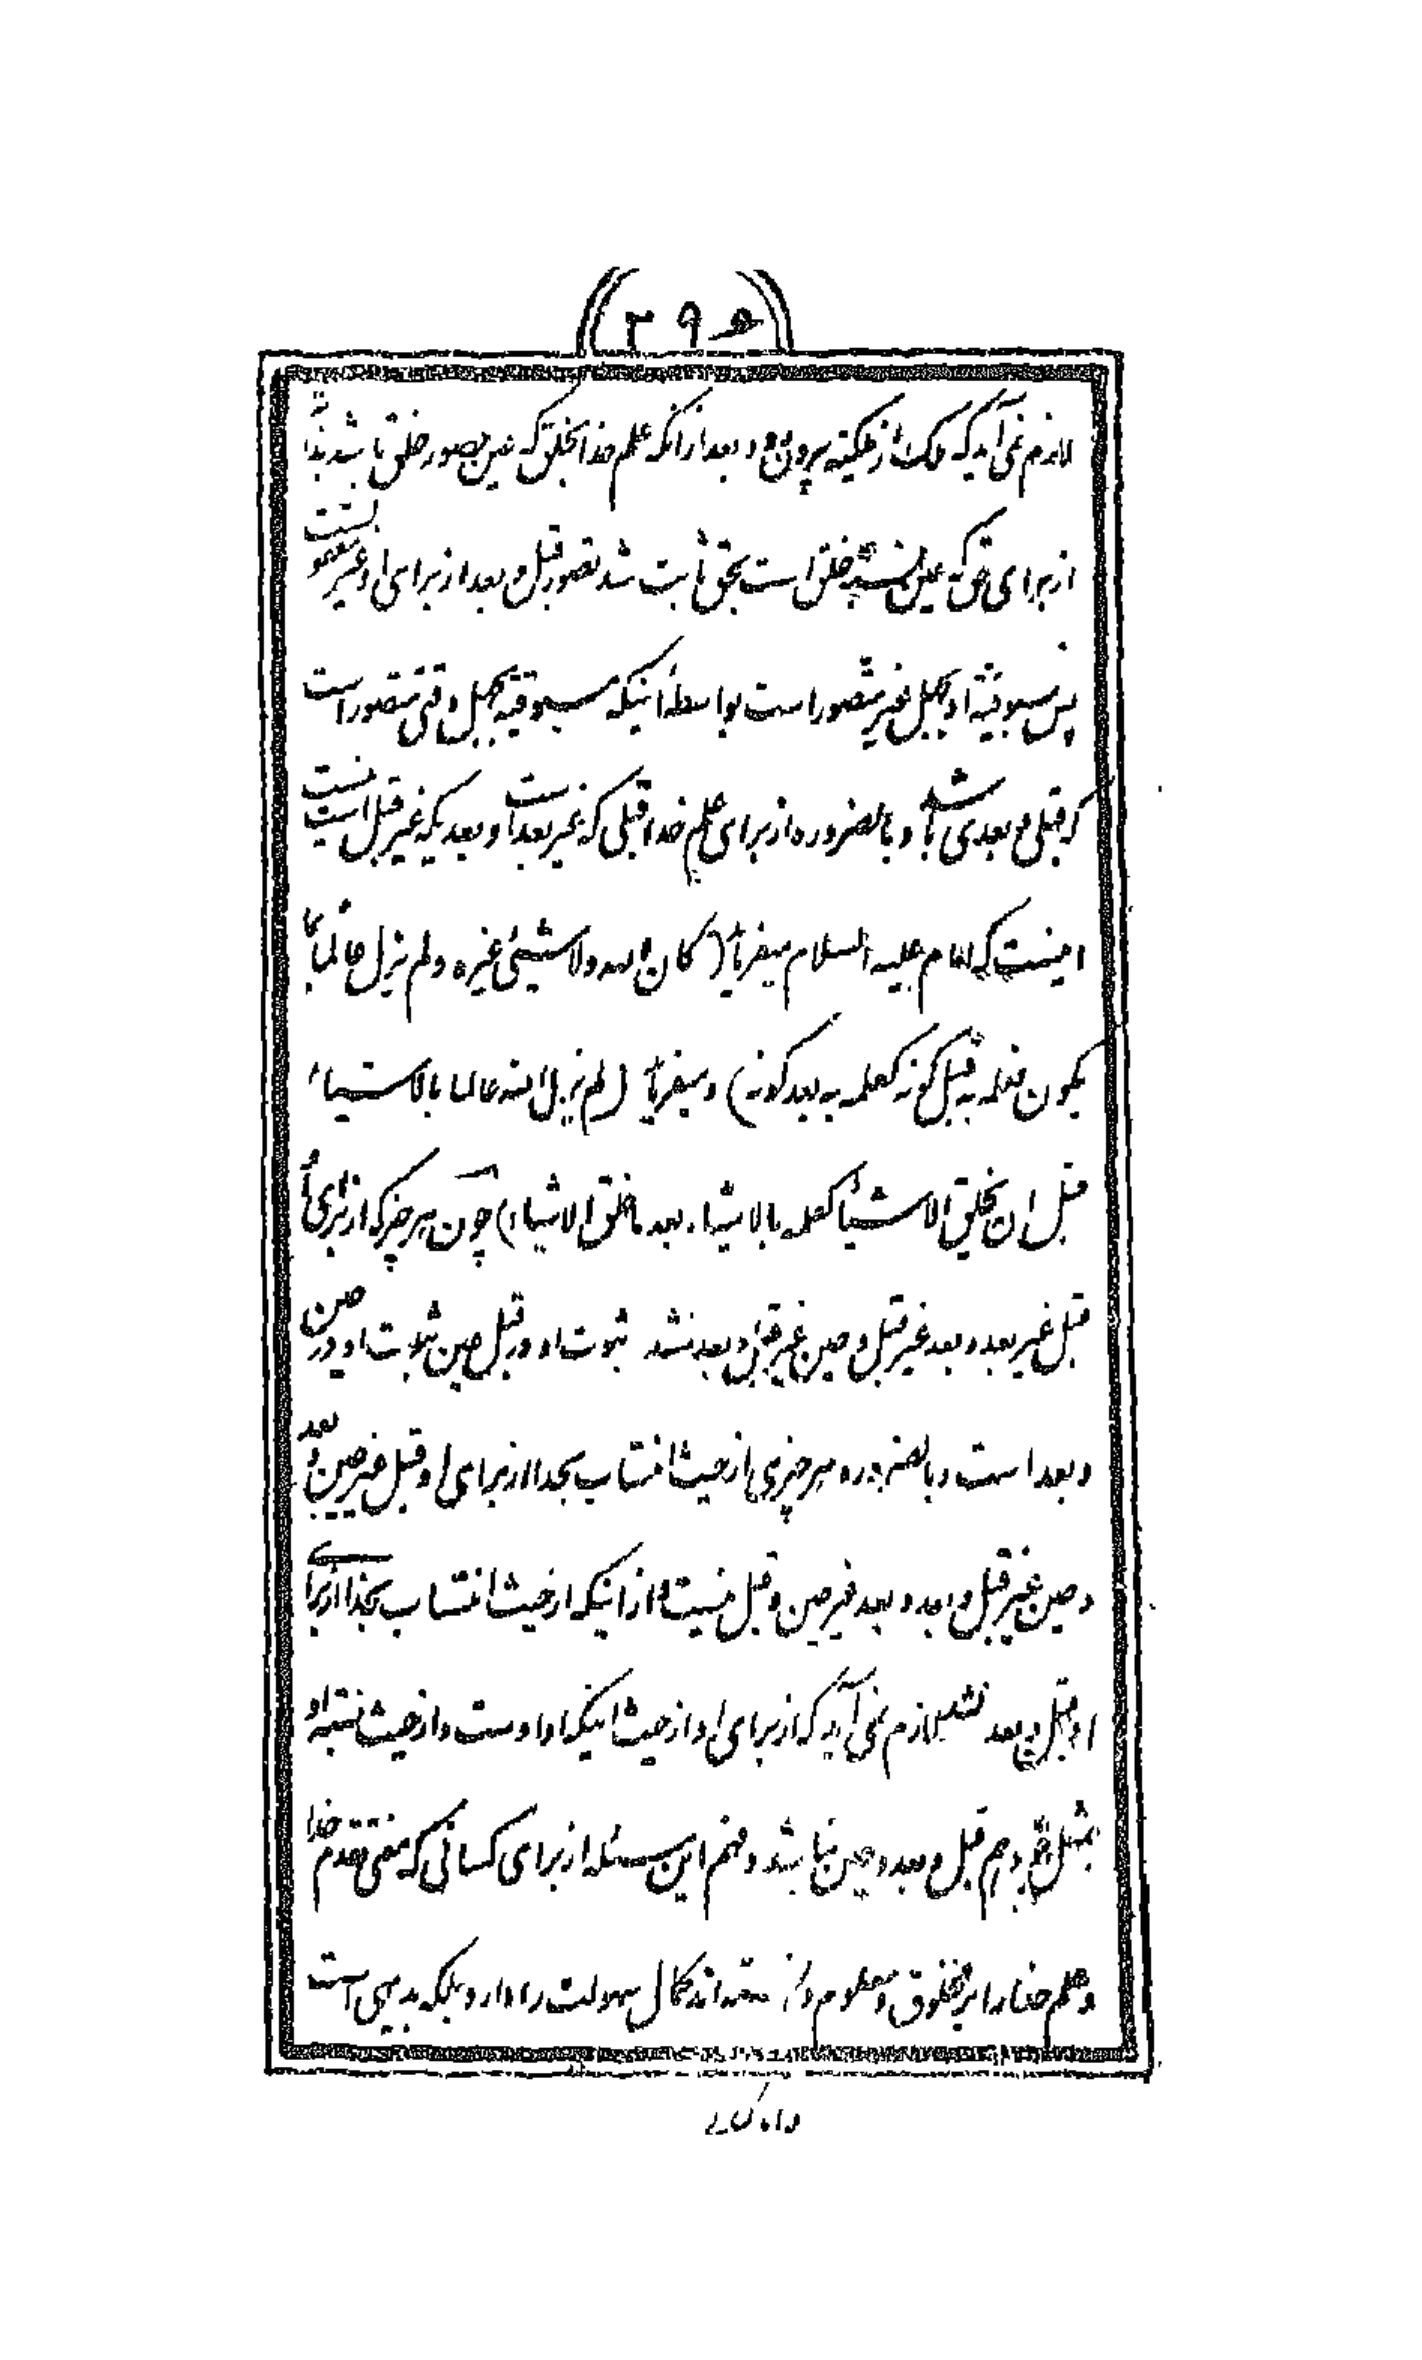 (۲۹۵)
لازم نمی‌آید که ملک از ملکیته بیرون رود و بعد از آنکه علم خدا بخلق که عین حضور خلق باشد بذاته
از برای حق که عین نسبة خلق است بحق ثابت شد تصور قبل و بعد از برای او غیر معقولست
پس مسبوقیة او بجهل غیر متصور است بواسطهٔ اینکه مسبوقیة بجهل وقتی متصور است
که قبلی و بعدی باشد و بالضروره از برای علم خدا قبلی که غیر بعد است و بعدیکه غیر قبل است نیست
اینست که امام علیه السلام میفرماید (کان الله ولا شیئ غیره ولم یزل عالما بما
یکون فعلمه به قبل کونه کعلمه به بعد کونه) و میفرماید (لم یزل الله عالما بالاشیاء
قبل ان یخلق الاشیاء کعلمه بالاشیاء بعد ما خلق الاشیاء) چون هر چیز که از برای او
قبل غیر بعد و بعد غیر قبل و حین غیر قبل و بعد نشد ثبوت او در قبل عین ثبوت او در حین
و بعد است و بالضروره هر چیزی از حیث انتساب بخدا از برای او قبل غیر حین و بعد
و حین غیر قبل و بعد و بعد غیر حین و قبل نیست و از اینکه از حیث انتساب بخدا از برای
او قبل و بعد نشد لازم نمی‌آید که از برای او از حیث اینکه او اوست و از حیث نسبة او
بمثل خود هم قبل و بعد و حین نباشد و فهم این مسئله از برای کسانی که معنی تقدم خدا
و علم خدا را بر مخلوق و معلوم دانسته‌اند کمال سهولت را دارد بلکه بدیهی است